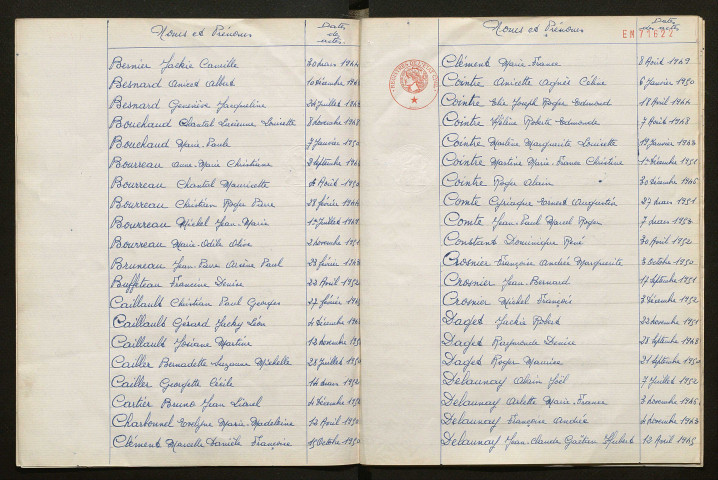 Noms et Prénoms
Dates des actes
Bernier Jackie Camille 30 mars
Besnard Amicet Albert 10 décembre
Besnard Geneviève Jacqueline Juillet
Bouchaud Chantal Lucienne Louisette 8 novembre 1948
Bouchaud Marie-Paule 7 Janvier 1950
Bourreau Anne-Marie Christiane Septembre
Bourreau Chantal Mauricette Août 1950
Bourreau Christian Roger Pierre 28 février
Bourreau Michel Jean-Marie 1er Juillet
Bourreau Marie-Odile Olive 2 novembre 1951
Bruneau Jean-Pierre Arsène Paul février
Buffeteau Francine Denise 22 Avril 1952
Caillault Christian Paul Georges 27 février
Caillault Gérard Jacky Léon décembre
Caillault Josiane Martine 13 novembre
Cailler Bernadette Suzanne Michelle 28 Juillet 1950
Cailler Georgette Cécile 14 mars
Cartier Bruno Jean Lionel décembre
Charbonnel Evelyne Marie-Madeleine 14 Avril
Clément Marcelle Danièle Françoise 15 Octobre 1950
Noms et Prénoms
Dates des actes
EM 71622
Clément Marie-France 8 Août 1949
Cointre Anicette Agnès Céline 6 Janvier 1950
Cointre Joseph Roger Edmond 18 Août
Cointre Hélène Roberte Edmonde 7 Août 1948
Cointre Martine Marguerite Louisette 19 Janvier
Cointre Martine Marie-France Christine 1er décembre 1951
Cointre Roger Alain 30 décembre
Comte Cyriaque Ernest Augustin 27 mars 1951
Comte Jean-Paul Marcel Roger 7 mars
Constant Dominique René 30 Août
Crosnier Françoise Andrée Marguerite 3 Octobre 1950
Crosnier Jean-Bernard 17 Septembre 1951
Crosnier Michel François 3 décembre
Daget Jackie Robert 23 novembre 1951
Daget Raymonde Denise 28 Septembre 1948
Daget Roger Maurice 21 Septembre 1950
Delaunay Alain Joël 7 Juillet
Delaunay Arlette Marie-France 3 novembre
Delaunay Françoise Andrée novembre
Delaunay Jean-Claude Gaëtan Hubert 10 Avril